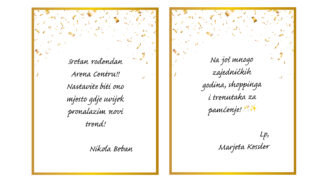 Sretan rođendan
Arena Centru!!
Nastavite biti ono
mjesto gdje uvijek
pronalazim novi
trend!
Nikola Boban
Na još mnogo
zajedničkih
godina, shoppinga
i trenutaka za
pamćenje! ✨✨
Lp,
Marjeta Kessler